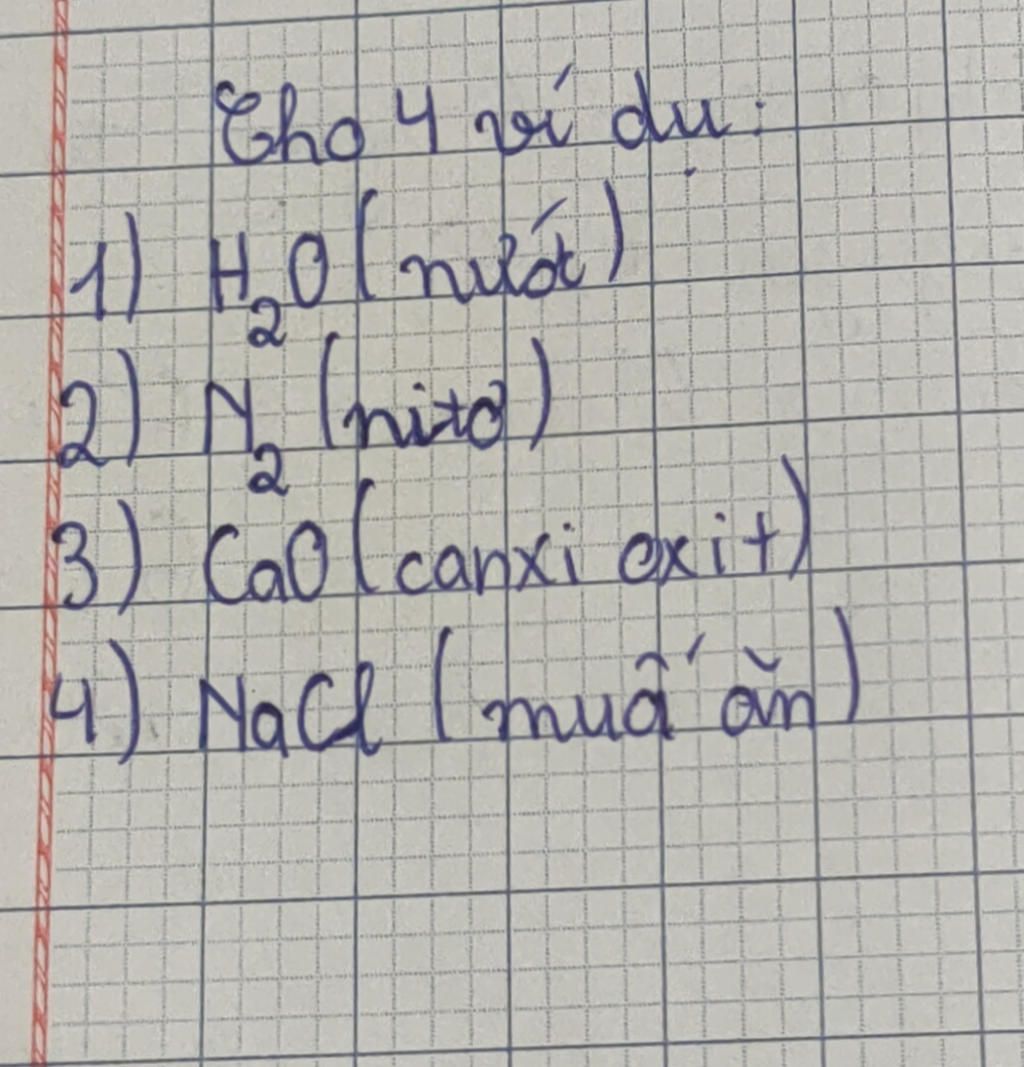 Cho 4 ví dụ:
1) H₂O (nước)
2) N₂ (nitơ)
3) CaO (canxi oxit)
4) NaCl (muấ ăn)